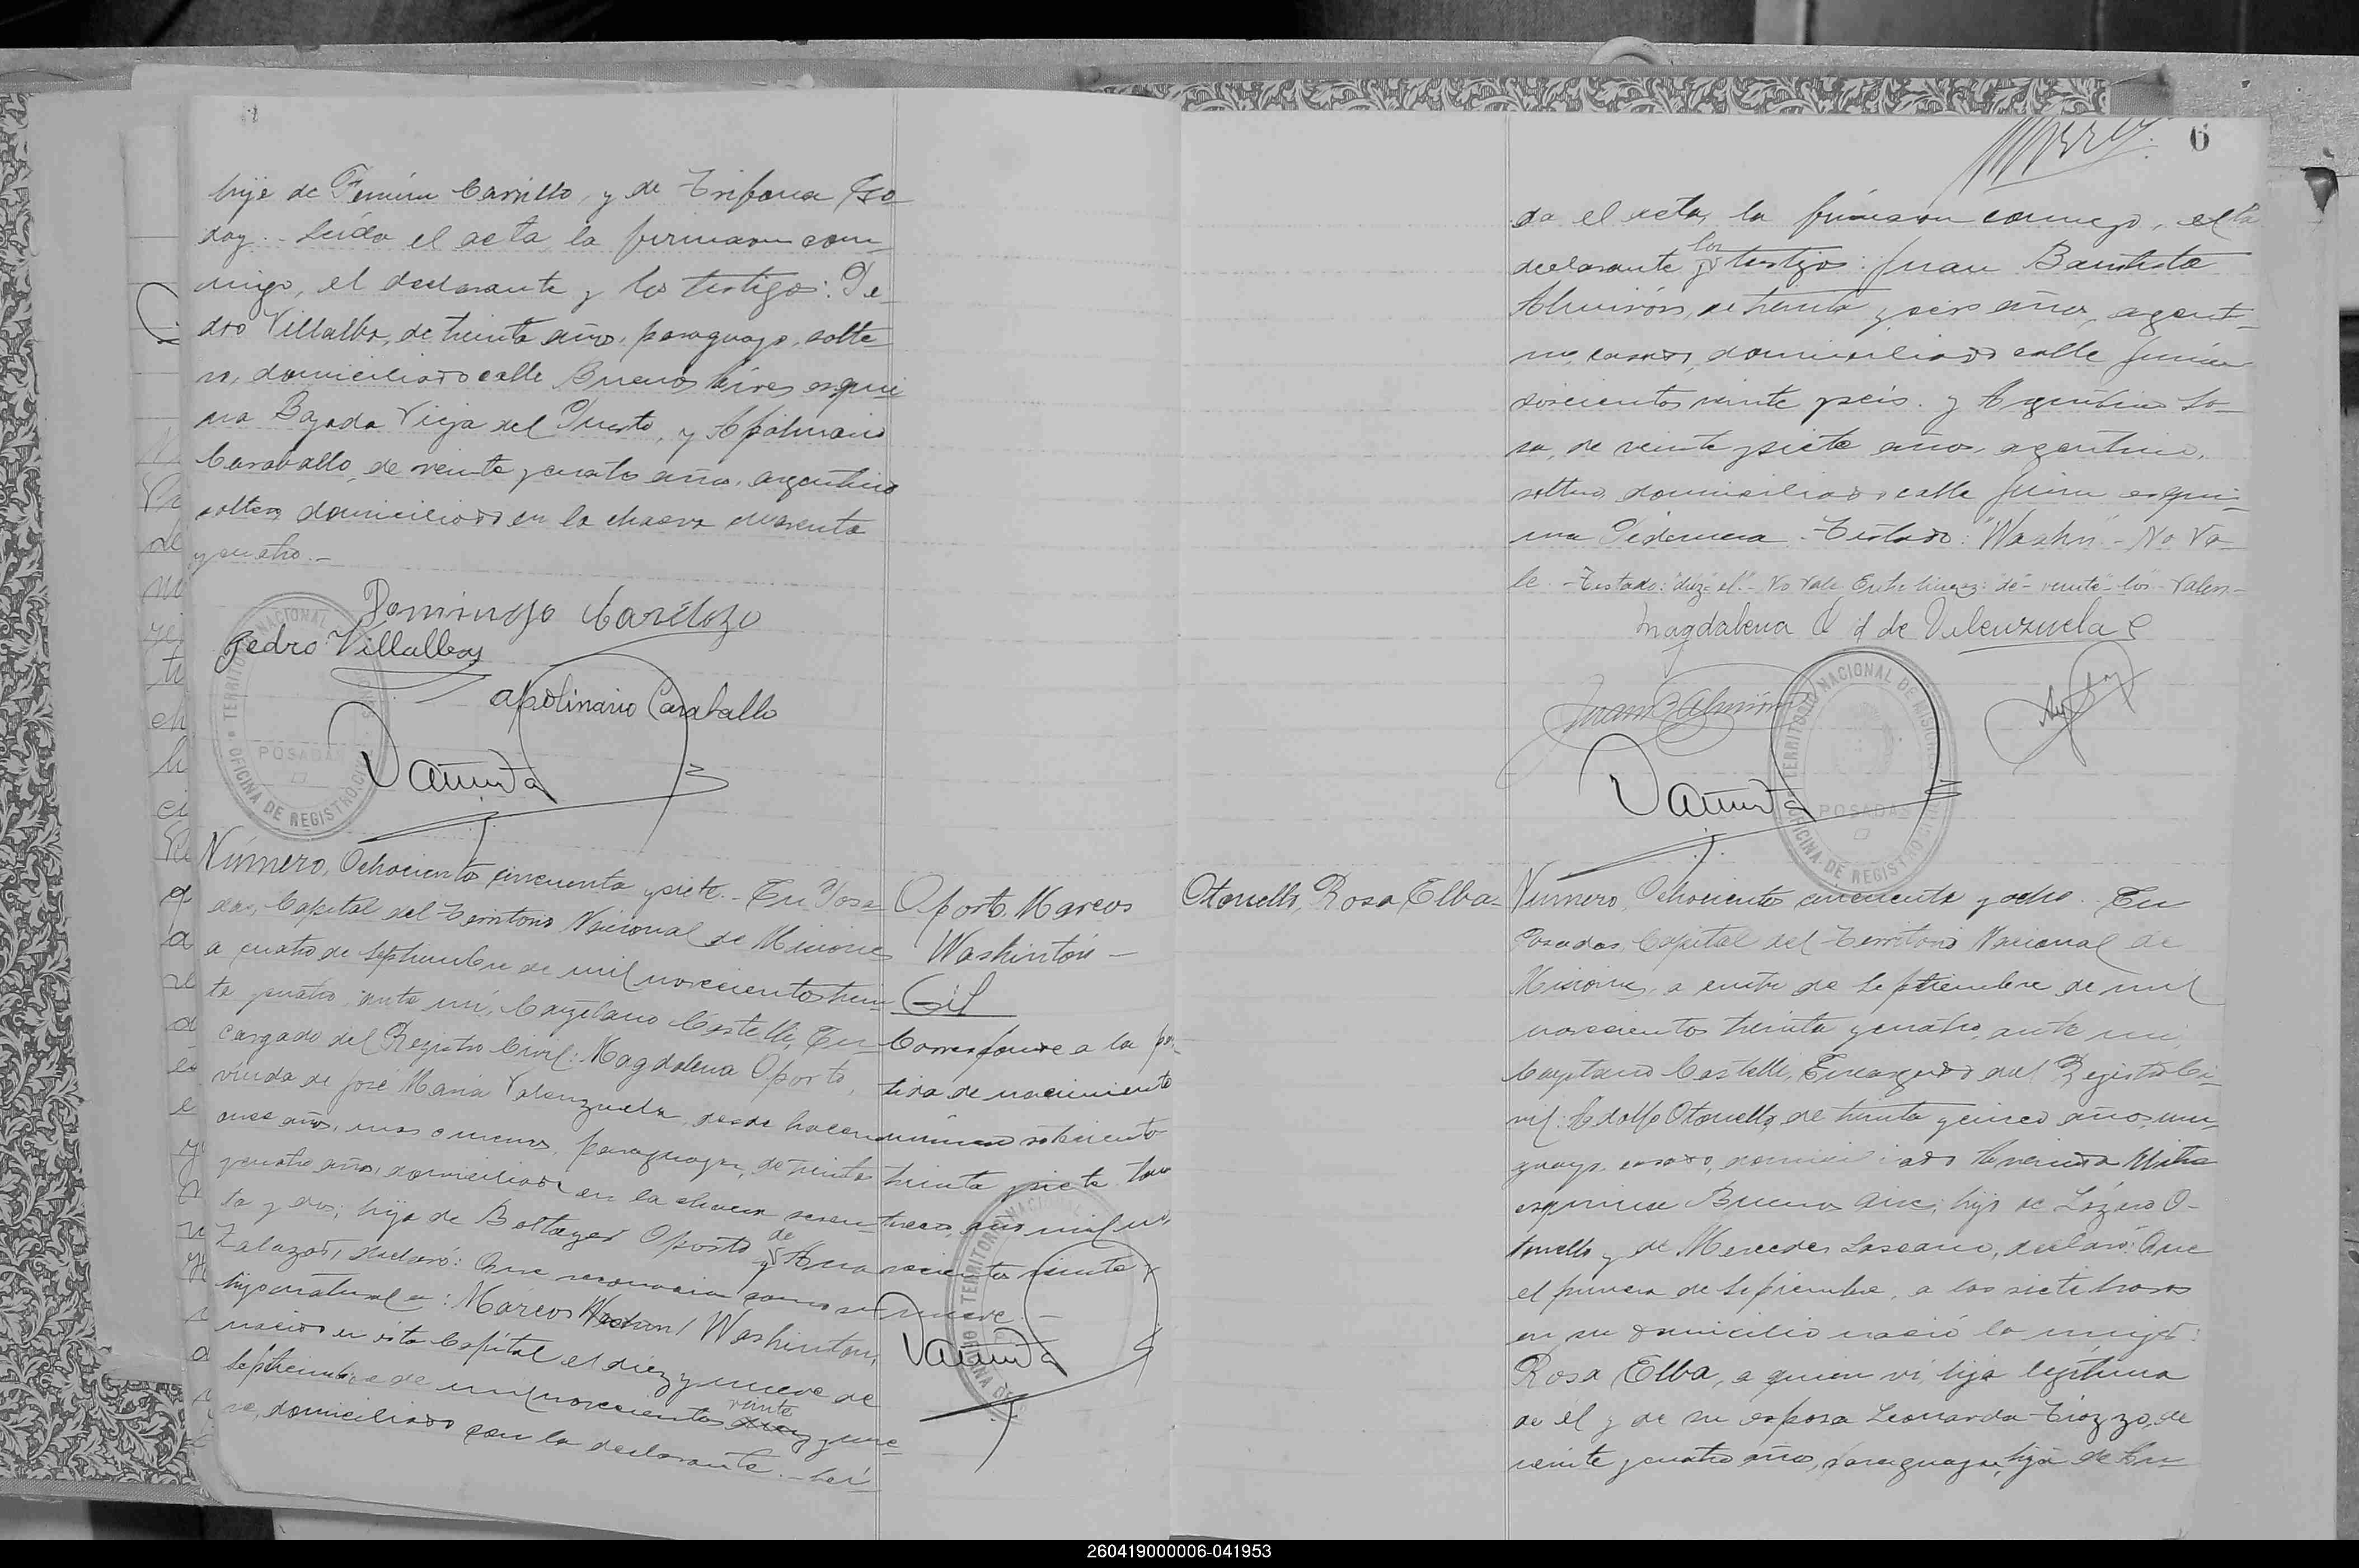 hije de Fermín Carrillo, y de Trifona Go
doy.- Leída el acta, la firmaron con
migo, el declarante y los testigos: Pe-
dro Villalba, de treinta años, paraguayo, solte
ro, domiciliado calle Buenos Aires esqui
na Bajada Vieja del Puerto, y Apolinario
Caraballo, de veinte y cuatro años, argentino
soltero, domiciliado en la chacra cuarenta
y cuatro.-
Domingo Cardozo
Pedro Villalba
Apolinario Caraballo
TERRITORIO NACIONAL
POSADAS
OFICINA DE REGISTRO CIVIL
Número, Ochociento cincuenta y siete.- En Posa
das, Capital del Territorio Nacional de Misione
a cuatro de septiembre de mil novecientos trein
ta y cuatro, ante mí, Cayetano Castelli, En-
cargado del Registro Civil: Magdalena Oporto,
viuda de José María Valenzuela, desde hacen
once años, mas o menos, paraguaya, de treinta
y cuatro años, domiciliada en la chacra sesen
ta y dos; hija de Baltazar Oporto y de Ana
Zalazar, declaró: Que reconocía como su
hijo natural a: Márcos Washin Washinton,
nacido en ésta Capital el diez y nueve de
septiembre de mil novecientos diez veinte y nue-
ve, domiciliado con la declarante.- Leí
Oporto, Marcos
Washintón -
Gil
Corresponde a la par-
tida de nacimiento
número seteciento
treinta y siete, tomo
tres, año mil no-
vecientos veinte y
nueve.-
6
da el acta, la firmaron conmigo, el la
declarante y los testigos: Juan Bautista
Almirón, de treinta y seis años, argent-
no, casado, domiciliado calle Junín
doscientos veinte y seis. y Argentino So-
sa, de veinte y siete años, argentino,
soltero, domiciliado, calle Junín esqui-
na Pedernera.- Testado: "Washin" - No Va-
le.- Testado: "diez" el".- No Vale. Entre lineas: de"- veinte"- los"- Valen-
Magdalena O d de Valenzuela
Juan B Almirón
TERRITORIO NACIONAL DE MISIONES
POSADAS
OFICINA DE REGISTRO CIVIL
Otonello, Rosa Elba-
Número, Ochocientos cincuenta y ocho.- En
Posadas, Capital del Territorio Nacional de
Misiones, a cuatro de Septiembre de mil
novecientos treinta y cuatro, ante mí,
Cayetano Castelli, Encargado del Registro Ci-
vil: Adolfo Otonello, de treinta y cinco años, uru-
guayo, casado, domiciliado Avenida Mitre
esquina Buenos Aires; hijo de Lázaro O-
tonello y de Mercedes Lascano, declaró: Que
el primero de Septiembre, a las siete horas
en su domicilio nació la mujer:
Rosa Elba, a quien ví, hija legítima
de él y de su esposa Leonarda Tiozzo, de
veinte y cuatro años, paraguaya, hija de